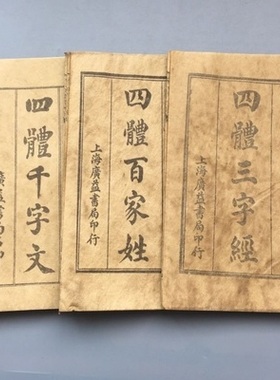 四體三字經
上海廣益書局印行
四體百家姓
上海廣益書局印行
四體千字文
廣益書局印